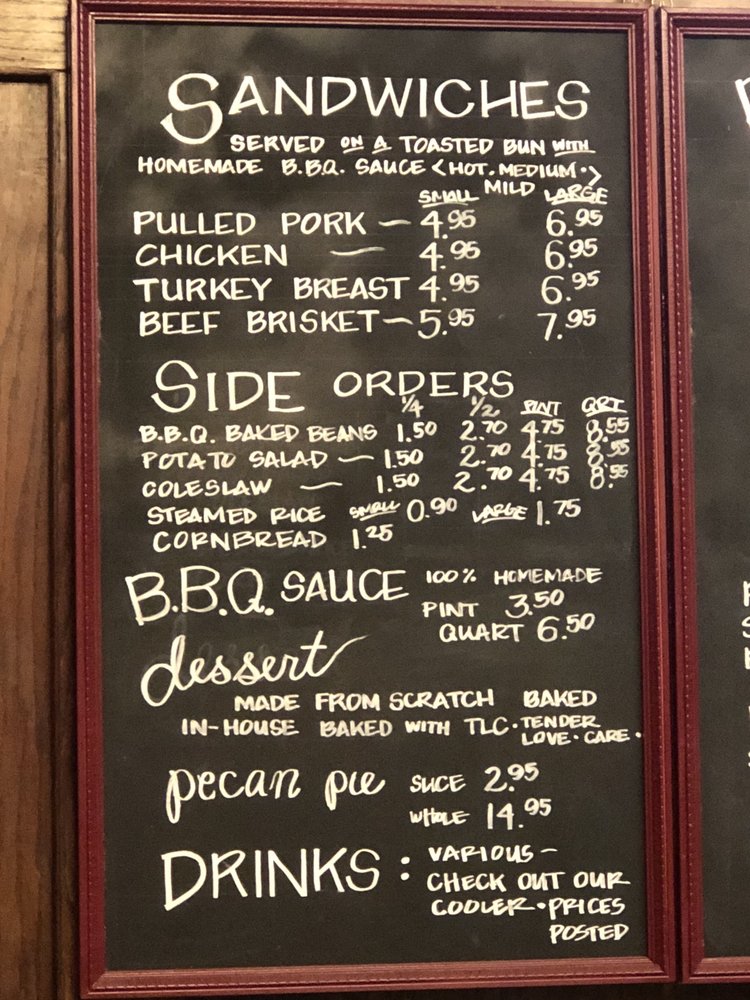 SANDWICHES
SERVED ON A TOASTED BUN WITH
HOMEMADE B.B.Q. SAUCE <HOT. MEDIUM.>
MILD
SMALL LARGE
PULLED PORK — 4.95 6.95
CHICKEN — 4.95 6.95
TURKEY BREAST 4.95 6.95
BEEF BRISKET — 5.95 7.95
SIDE ORDERS
1/4 1/2 PINT QRT
B.B.Q. BAKED BEANS 1.50 2.70 4.75 8.55
POTATO SALAD — 1.50 2.70 4.75 8.95
COLESLAW — 1.50 2.70 4.75 8.95
STEAMED RICE SMALL 0.90 LARGE 1.75
CORNBREAD 1.25
B.B.Q. SAUCE 100% HOMEMADE
PINT 3.50
QUART 6.50
dessert
MADE FROM SCRATCH BAKED
IN-HOUSE BAKED WITH TLC. TENDER
LOVE. CARE.
pecan pie SLICE 2.95
WHOLE 14.95
DRINKS: VARIOUS -
CHECK OUT OUR
COOLER. PRICES
POSTED